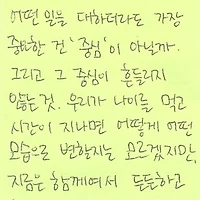 어떤 일을 대하더라도 가장
중요한 건 '중심'이 아닐까.
그리고 그 중심이 흔들리지
않는 것. 우리가 나이를 먹고
시간이 지나면 어떻게 어떤
모습으로 변할지는 모르겠지만,
지금은 함께여서 든든하고